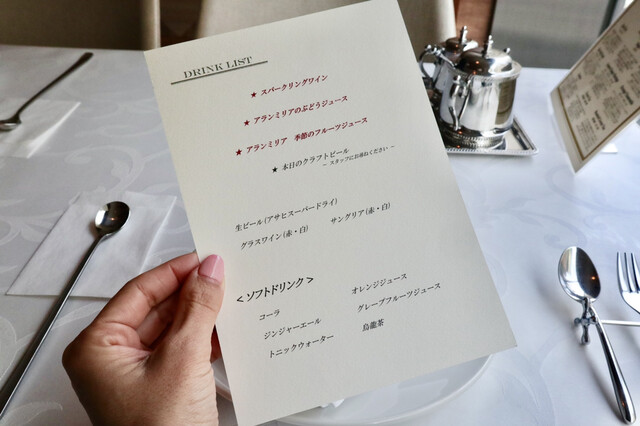 DRINK LIST
★ スパークリングワイン
★ アランミリアのぶどうジュース
★ アランミリア 季節のフルーツジュース
★ 本日のクラフトビール
～ スタッフにお尋ねください ～
生ビール(アサヒスーパードライ)
グラスワイン(赤・白) サングリア(赤・白)
＜ソフトドリンク＞
コーラ オレンジジュース
ジンジャーエール グレープフルーツジュース
トニックウォーター 烏龍茶